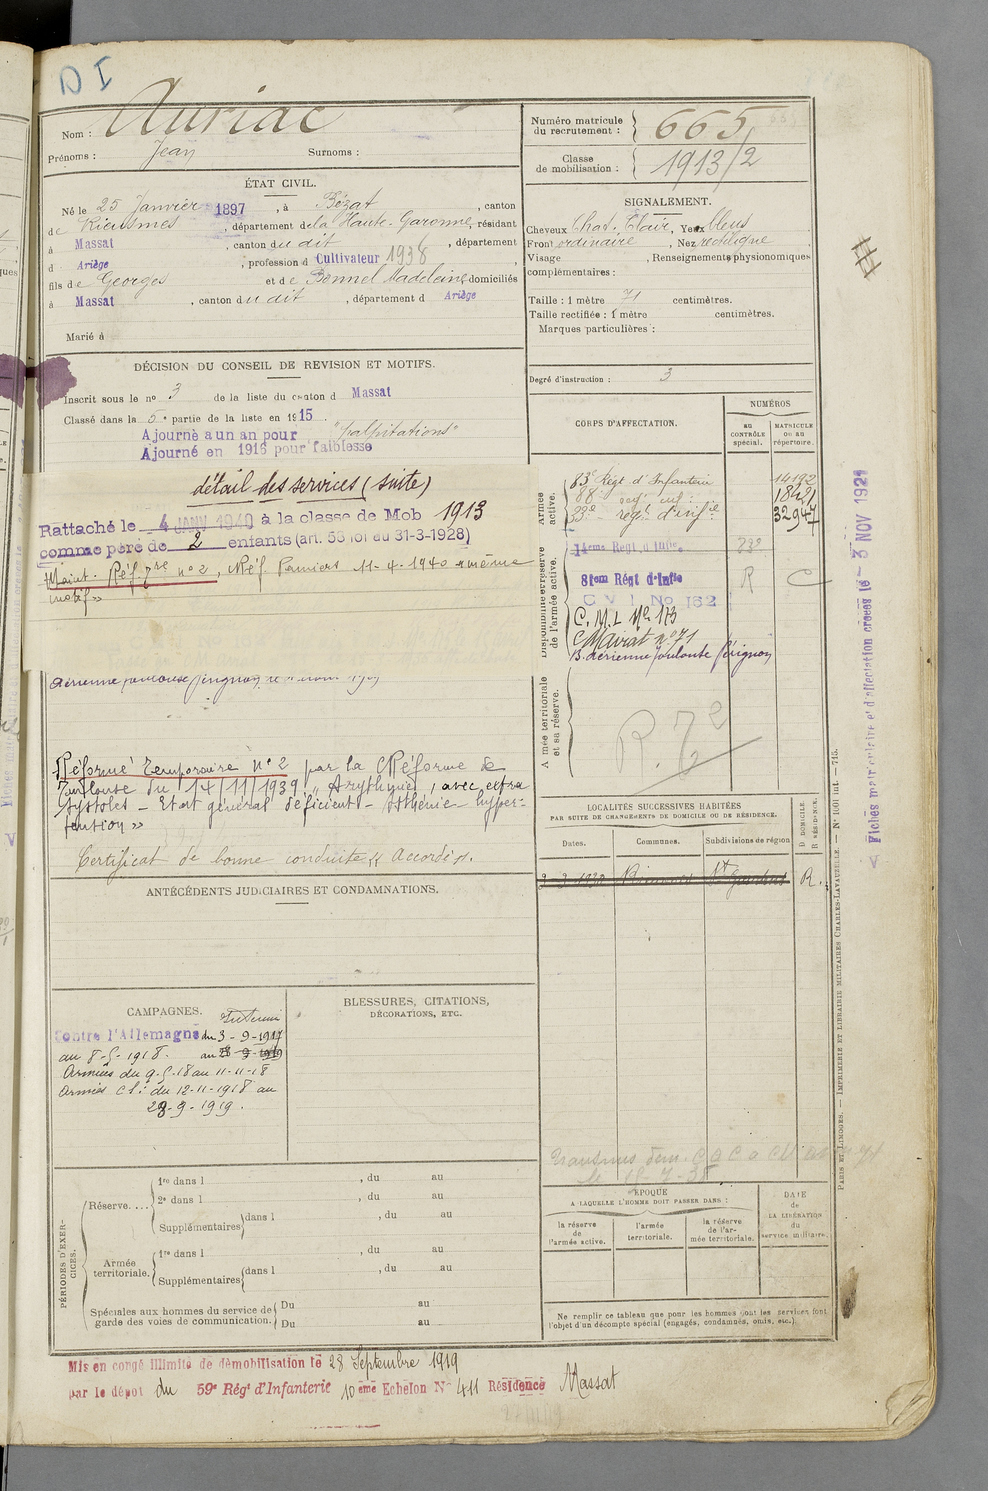 D I
Nom : Auriac
Prénoms : Jean Surnoms :
ÉTAT CIVIL.
Né le 25 Janvier 1897, à Bézat, canton
de Rieumes, département de la Haute-Garonne, résidant
à Massat, canton du dit, département
d Ariège, profession d Cultivateur 1938
fils de Georges et de Bonnel Madeleine, domiciliés
à Massat, canton du dit, département d Ariège
Marié à
DÉCISION DU CONSEIL DE REVISION ET MOTIFS.
Inscrit sous le no 3 de la liste du canton d Massat
Classé dans la 5e partie de la liste en 1915.
Ajourné a un an pour "palpitations"
Ajourné en 1916 pour faiblesse
détail des services (suite)
Rattaché le 4 JANV 1940 à la classe de Mob 1913
comme père de 2 enfants (art. 58 loi du 31-3-1928)
Maint. Réf. 7re no 2, Réf. Pamiers 11-4-1940 "même
motif"
Aérienne Toulouse
Réformé Temporaire No 2 par la C Réforme de
Toulouse du 14/11/1939 "Arythmie, avec extra
systoles - Etat général déficient - Asthénie - hyper-
tension"
Certificat de bonne conduite "Accordé".
ANTÉCÉDENTS JUDICIAIRES ET CONDAMNATIONS.
CAMPAGNES.
Intérieur
Contre l'Allemagne du 3-9-1917
au 8-5-1918. au 28-9-1919
Armées du 9-5-18 au 11-11-18
Armées du 12-11-1918 au
28-9-1919.
BLESSURES, CITATIONS,
DÉCORATIONS, ETC.
PÉRIODES D'EXERCICES.
Réserve....
1re dans l , du au
2e dans l , du au
Supplémentaires dans l , du au
Armée territoriale.
1re dans l , du au
Supplémentaires dans l , du au
Spéciales aux hommes du service de garde des voies de communication.
Du au
Du au
Mis en congé illimité de démobilisation le 28 Septembre 1919
par le dépôt du 59e Régt d'Infanterie 10ème Echelon No 411 Résidence Massat
Numéro matricule du recrutement : 665
Classe de mobilisation : 1913/2
SIGNALEMENT.
Cheveux Chat. Clair, Yeux bleus
Front ordinaire, Nez rectiligne,
Visage , Renseignements physionomiques
complémentaires :
Taille : 1 mètre 71 centimètres.
Taille rectifiée : 1 mètre centimètres.
Marques particulières :
Degré d'instruction : 3
CORPS D'AFFECTATION.
NUMÉROS
AU CONTRÔLE spécial.
MATRICULE OU AU répertoire.
Armée active.
83e Régt d'Infanterie 14192
88e reg. inf. 18421
33e regt d'infie 32947
Disponibilité et réserve de l'armée active.
14eme Régt d'Infie
81em Régt d'Infie R C
C V I No 162
C. M. I. No 173
C Mavrat no 71
B. Aérienne Toulouse
Armée territoriale et sa réserve.
R. 7 2
LOCALITÉS SUCCESSIVES HABITÉES
PAR SUITE DE CHANGEMENTS DE DOMICILE OU DE RÉSIDENCE.
D DOMICILE. R RÉSIDENCE.
Dates. Communes. Subdivisions de région
St Gaudens R.
ÉPOQUE
A LAQUELLE L'HOMME DOIT PASSER DANS :
la réserve de l'armée active.
l'armée territoriale.
la réserve de l'armée territoriale.
DATE de LA LIBÉRATION du service militaire.
Ne remplir ce tableau que pour les hommes dont les services font
l'objet d'un décompte spécial (engagés, condamnés, omis, etc.).
Fiches matriculaire et d'affectation créées le 3 NOV 1921
PARIS ET LIMOGES. — IMPRIMERIE ET LIBRAIRIE MILITAIRES CHARLES-LAVAUZELLE. — No 1001 int. — 715.